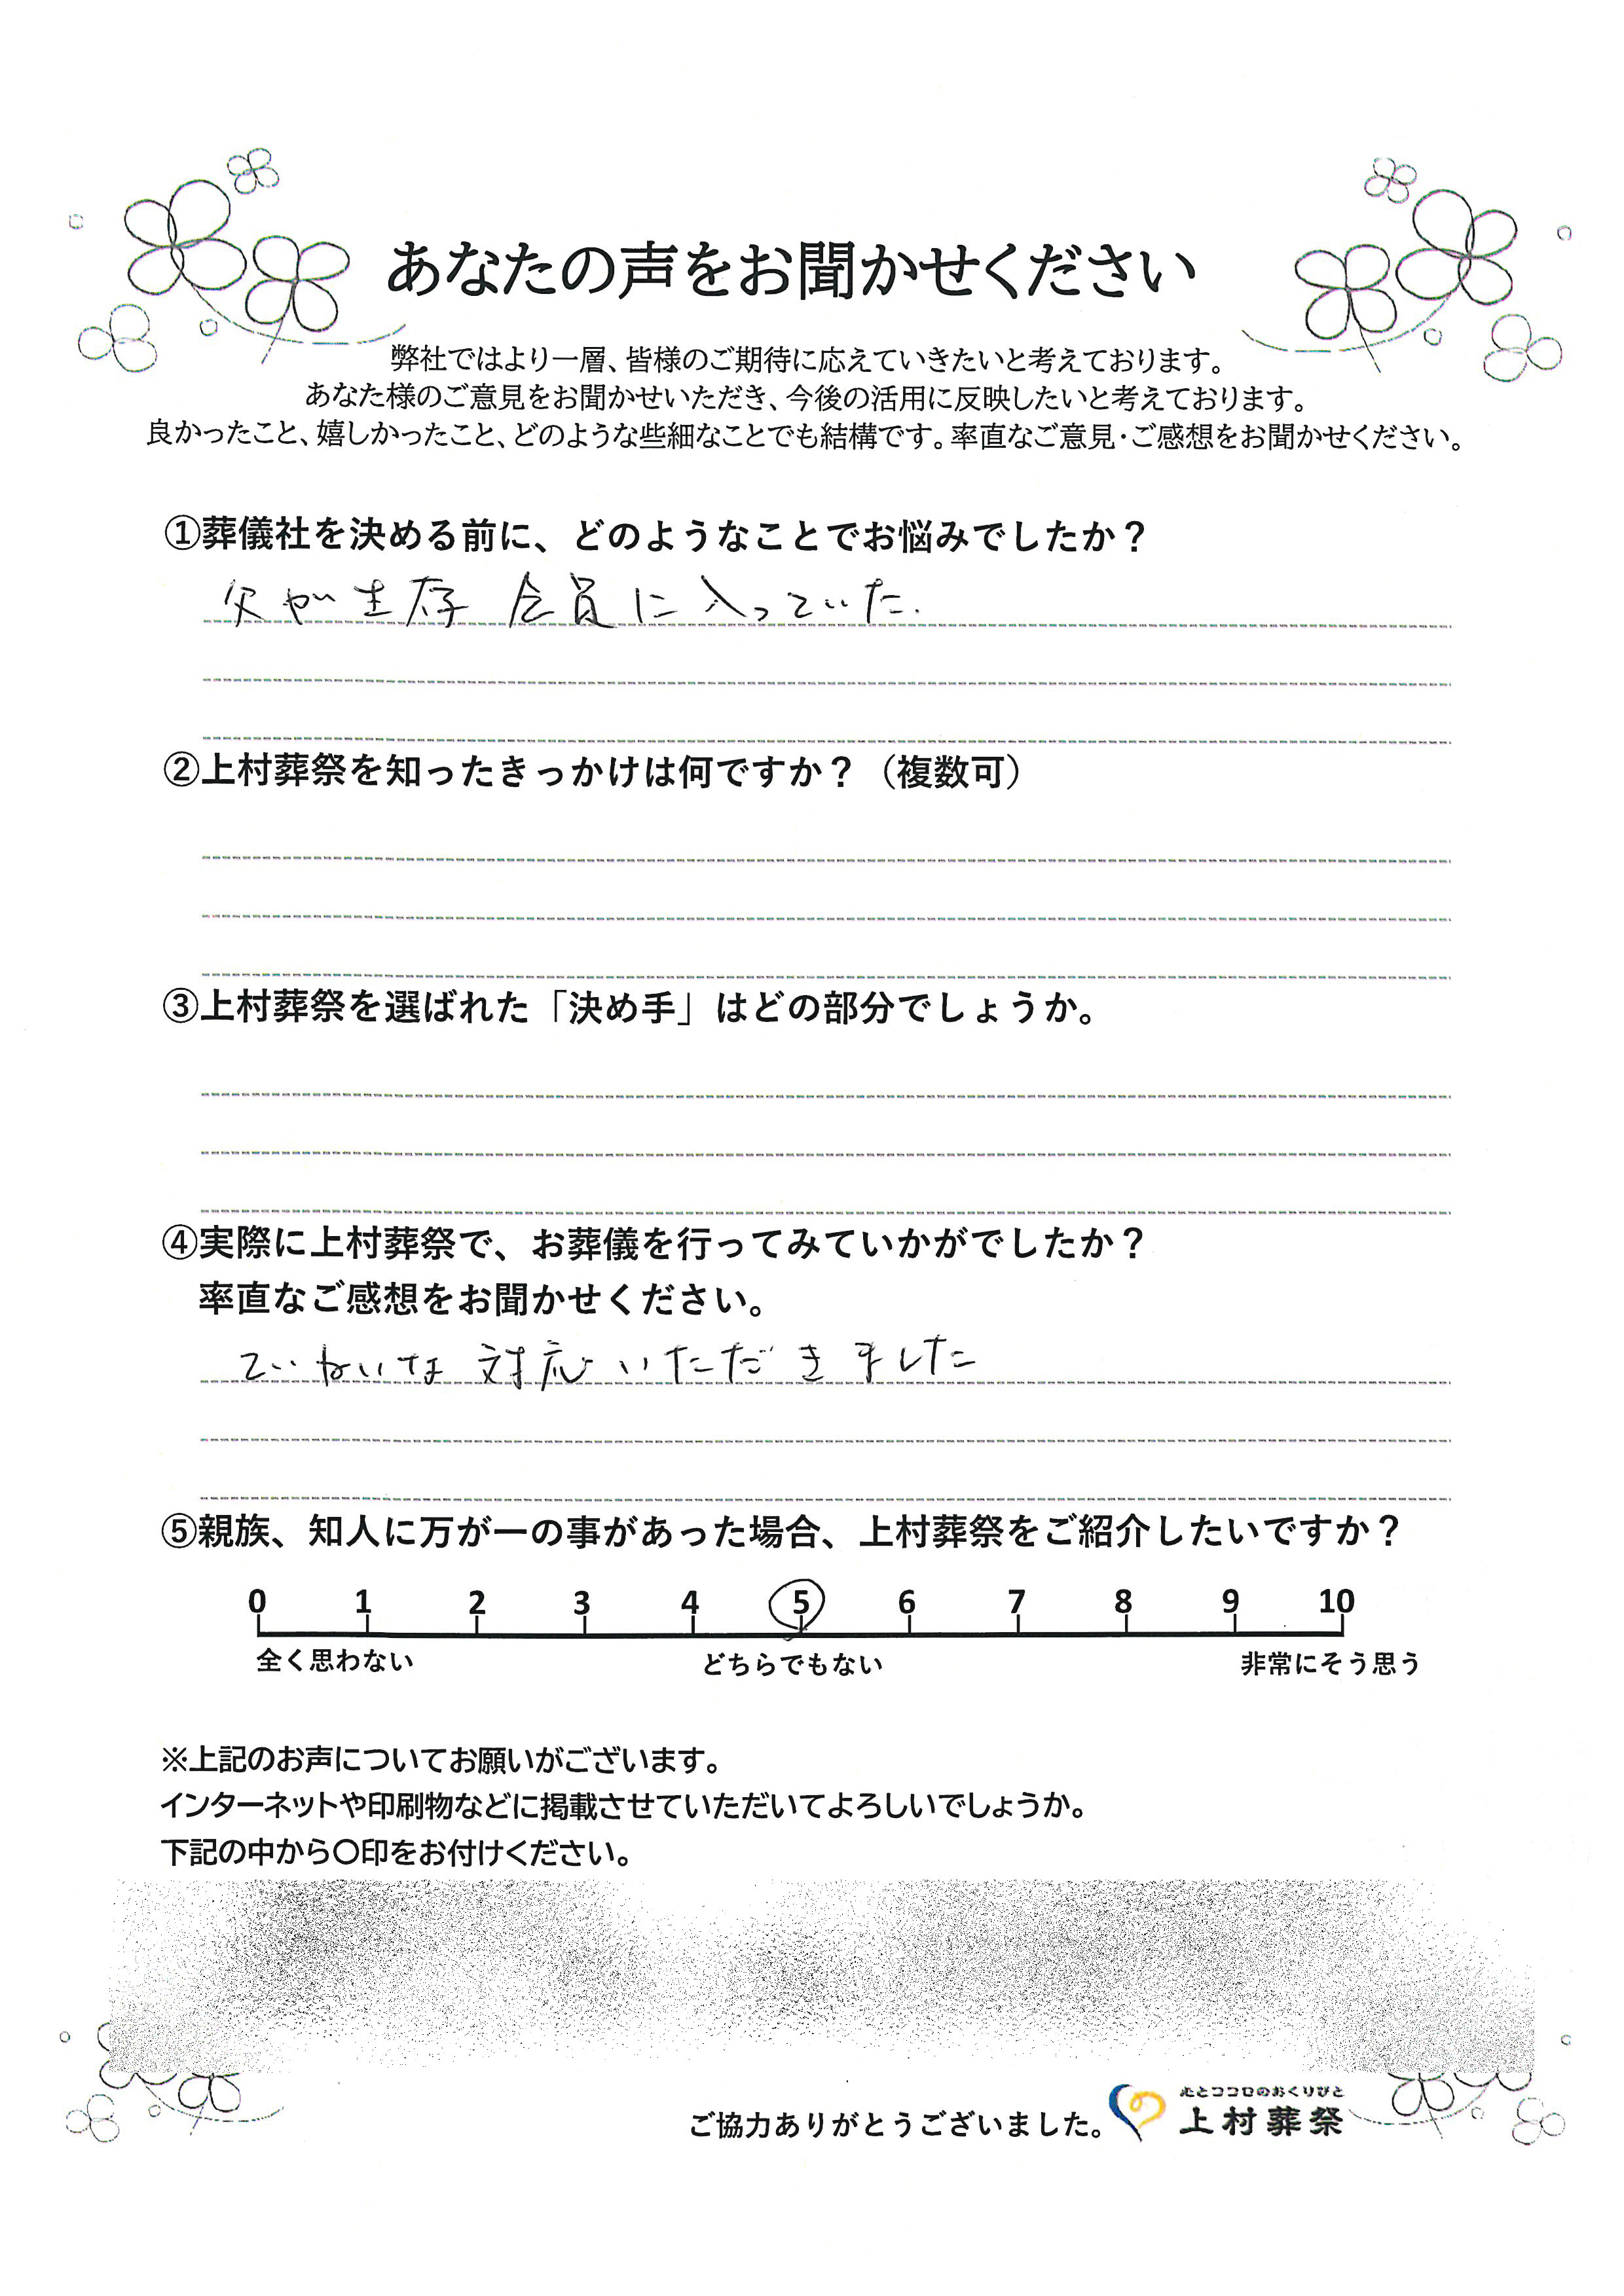 あなたの声をお聞かせください
弊社ではより一層、皆様のご期待に応えていきたいと考えております。
あなた様のご意見をお聞かせいただき、今後の活用に反映したいと考えております。
良かったこと、嬉しかったこと、どのような些細なことでも結構です。率直なご意見・ご感想をお聞かせください。
①葬儀社を決める前に、どのようなことでお悩みでしたか？
父が生存 会員に入っていた.
②上村葬祭を知ったきっかけは何ですか？（複数可）
③上村葬祭を選ばれた「決め手」はどの部分でしょうか。
④実際に上村葬祭で、お葬儀を行ってみていかがでしたか？
率直なご感想をお聞かせください。
ていねいな 対応 いただきました
⑤親族、知人に万が一の事があった場合、上村葬祭をご紹介したいですか？
0 1 2 3 4 5 6 7 8 9 10
全く思わない どちらでもない 非常にそう思う
※上記のお声についてお願いがございます。
インターネットや印刷物などに掲載させていただいてよろしいでしょうか。
下記の中から〇印をお付けください。
心とココロのおくりびと
ご協力ありがとうございました。 上村葬祭